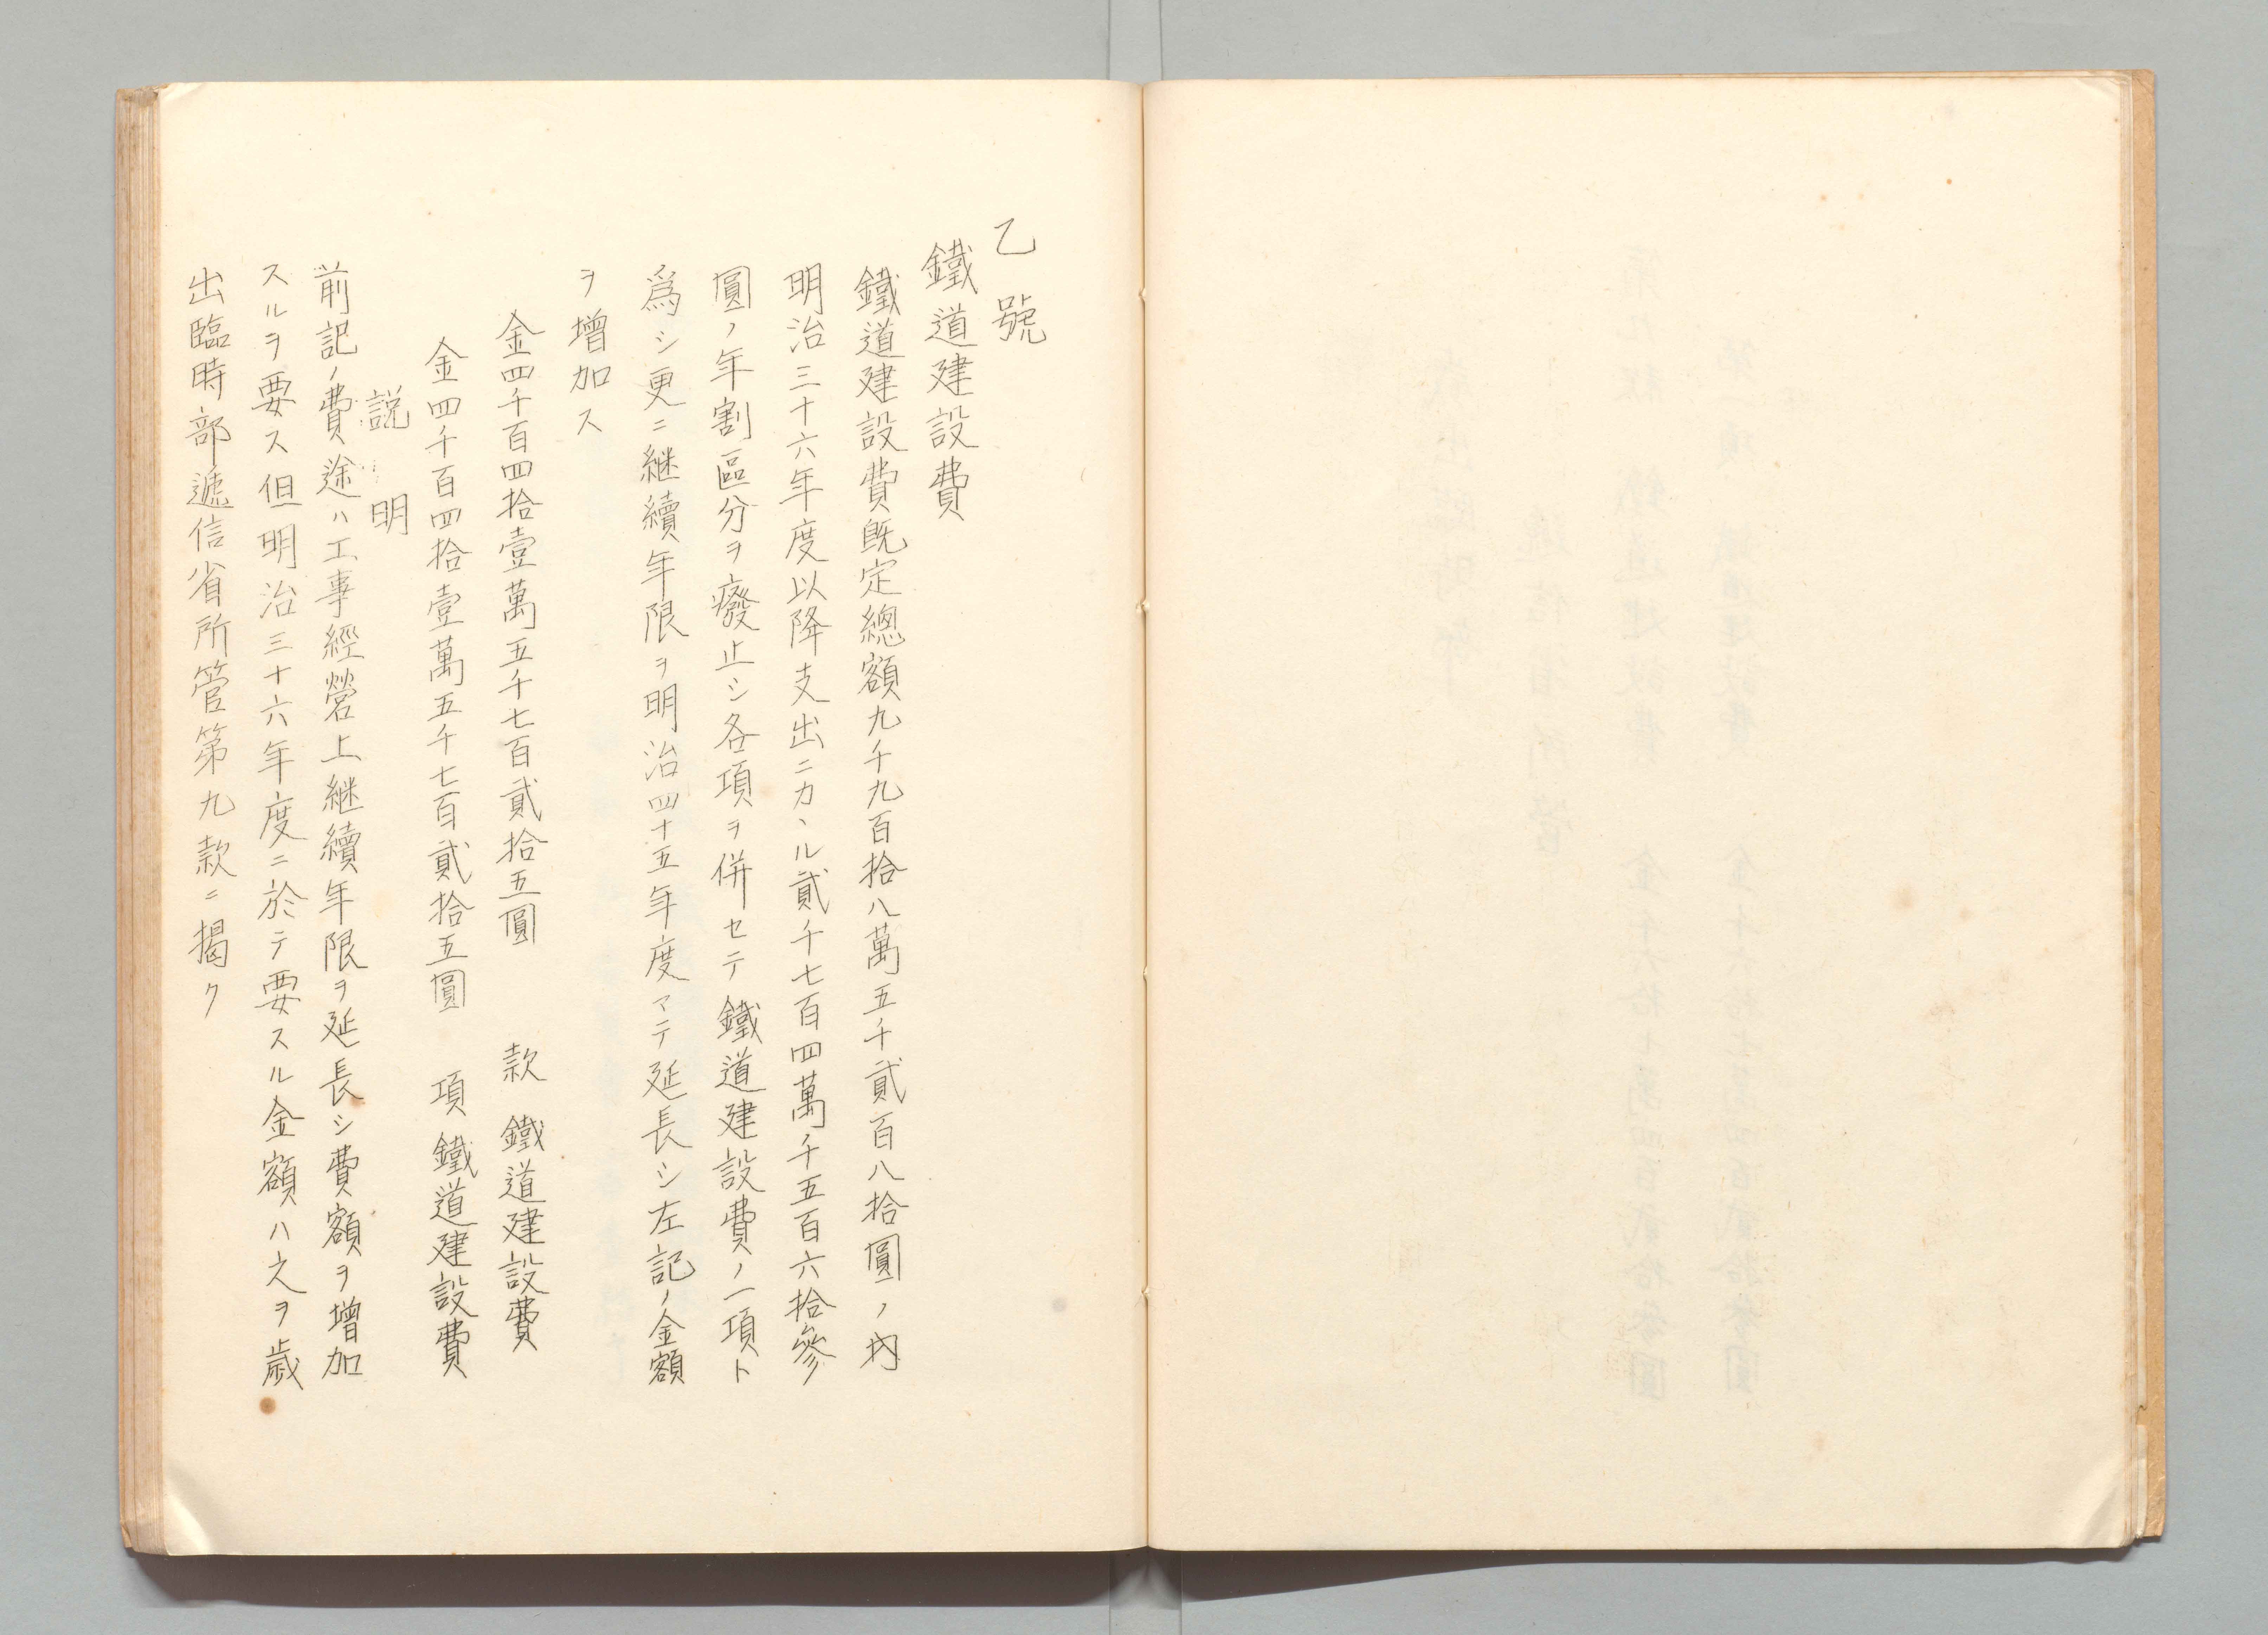 乙號
鐵道建設費
鐵道建設費既定總額九千九百拾八萬五千貳百八拾圓ノ内
明治三十六年度以降支出ニカヽル貳千七百四萬千五百六拾參
圓ノ年割區分ヲ廢止シ各項ヲ併セテ鐵道建設費ノ一項ト
爲シ更ニ継續年限ヲ明治四十五年度マテ延長シ左記ノ金額
ヲ增加ス
金四千百四拾壹萬五千七百貳拾五圓 款 鐵道建設費
金四千百四拾壹萬五千七百貳拾五圓 項 鐵道建設費
說明
前記ノ費途ハ工事經營上継續年限ヲ延長シ費額ヲ增加
スルヲ要ス但明治三十六年度ニ於テ要スル金額ハ之ヲ歲
出臨時部遞信省所管第九款ニ揭ク